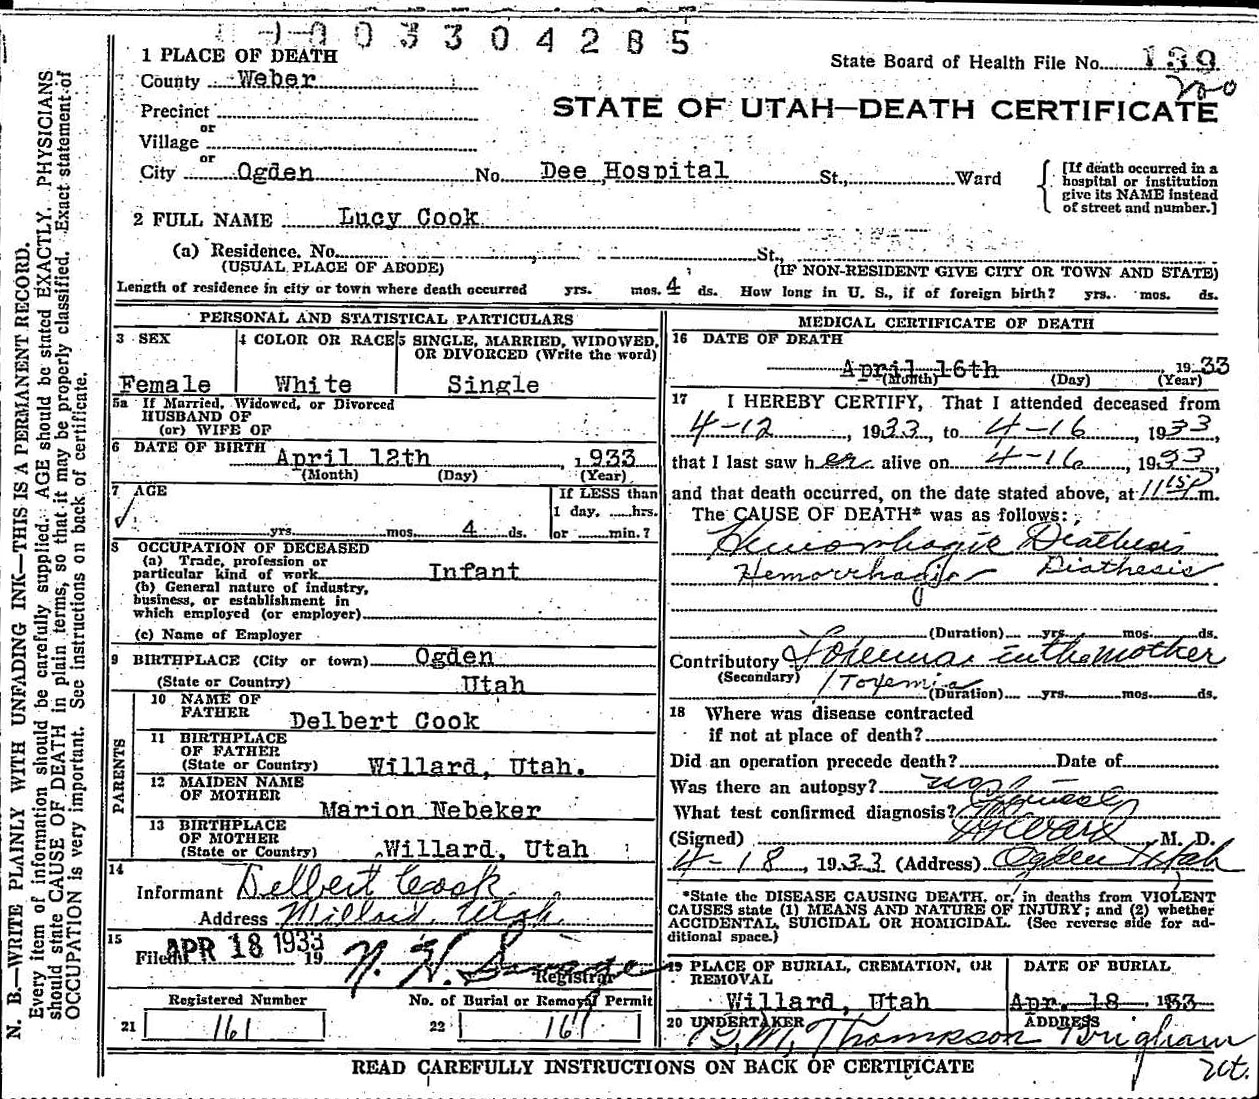 003304285
1 PLACE OF DEATH
State Board of Health File No. 139
200
County Weber
STATE OF UTAH—DEATH CERTIFICATE
Precinct
or
Village
or
City Ogden No. Dee Hospital St., Ward
[If death occurred in a hospital or institution give its NAME instead of street and number.]
2 FULL NAME Lucy Cook
(a) Residence. No. St.,
(USUAL PLACE OF ABODE) (IF NON-RESIDENT GIVE CITY OR TOWN AND STATE)
Length of residence in city or town where death occurred yrs. mos. 4 ds. How long in U. S., if of foreign birth? yrs. mos. ds.
PERSONAL AND STATISTICAL PARTICULARS
3 SEX 4 COLOR OR RACE 5 SINGLE, MARRIED, WIDOWED, OR DIVORCED (Write the word)
Female White Single
5a If Married, Widowed, or Divorced
HUSBAND OF
(or) WIFE OF
6 DATE OF BIRTH April 12th, 1933
(Month) (Day) (Year)
7 AGE If LESS than
1 day, hrs.
yrs. mos. 4 ds. or min.?
8 OCCUPATION OF DECEASED
(a) Trade, profession or
particular kind of work Infant
(b) General nature of industry,
business, or establishment in
which employed (or employer)
(c) Name of Employer
9 BIRTHPLACE (City or town) Ogden
(State or Country) Utah
PARENTS
10 NAME OF
FATHER Delbert Cook
11 BIRTHPLACE
OF FATHER
(State or Country) Willard, Utah.
12 MAIDEN NAME
OF MOTHER Marion Nebeker
13 BIRTHPLACE
OF MOTHER
(State or Country) Willard, Utah
14
Informant Delbert Cook
Address Willard, Utah.
15
Filed APR 18 1933 19 N. H. Savage
Registrar
Registered Number No. of Burial or Removal Permit
21 161 22 161
MEDICAL CERTIFICATE OF DEATH
16 DATE OF DEATH
April 16th, 1933
(Month) (Day) (Year)
17 I HEREBY CERTIFY, That I attended deceased from
4-12, 1933, to 4-16, 1933,
that I last saw her alive on 4-16, 1933,
and that death occurred, on the date stated above, at 11 15 P m.
The CAUSE OF DEATH* was as follows:
Hemorrhagic Diathesis
Hemorrhagic Diathesis
(Duration) yrs. mos. ds.
Contributory Toxemia in the Mother
(Secondary) Toxemia
(Duration) yrs. mos. ds.
18 Where was disease contracted
if not at place of death?
Did an operation precede death? Date of
Was there an autopsy?
What test confirmed diagnosis?
(Signed) M. D.
4-18, 1933 (Address) Ogden Utah
*State the DISEASE CAUSING DEATH, or, in deaths from VIOLENT
CAUSES state (1) MEANS AND NATURE OF INJURY; and (2) whether
ACCIDENTAL, SUICIDAL OR HOMICIDAL. (See reverse side for ad-
ditional space.)
19 PLACE OF BURIAL, CREMATION, OR
REMOVAL DATE OF BURIAL
Willard, Utah Apr. 18, 1933
20 UNDERTAKER ADDRESS
M. Thompson Brigham
Ut.
READ CAREFULLY INSTRUCTIONS ON BACK OF CERTIFICATE
N. B.—WRITE PLAINLY WITH UNFADING INK—THIS IS A PERMANENT RECORD.
Every item of information should be carefully supplied. AGE should be stated EXACTLY. PHYSICIANS
should state CAUSE OF DEATH in plain terms, so that it may be properly classified. Exact statement of
OCCUPATION is very important. See instructions on back of certificate.